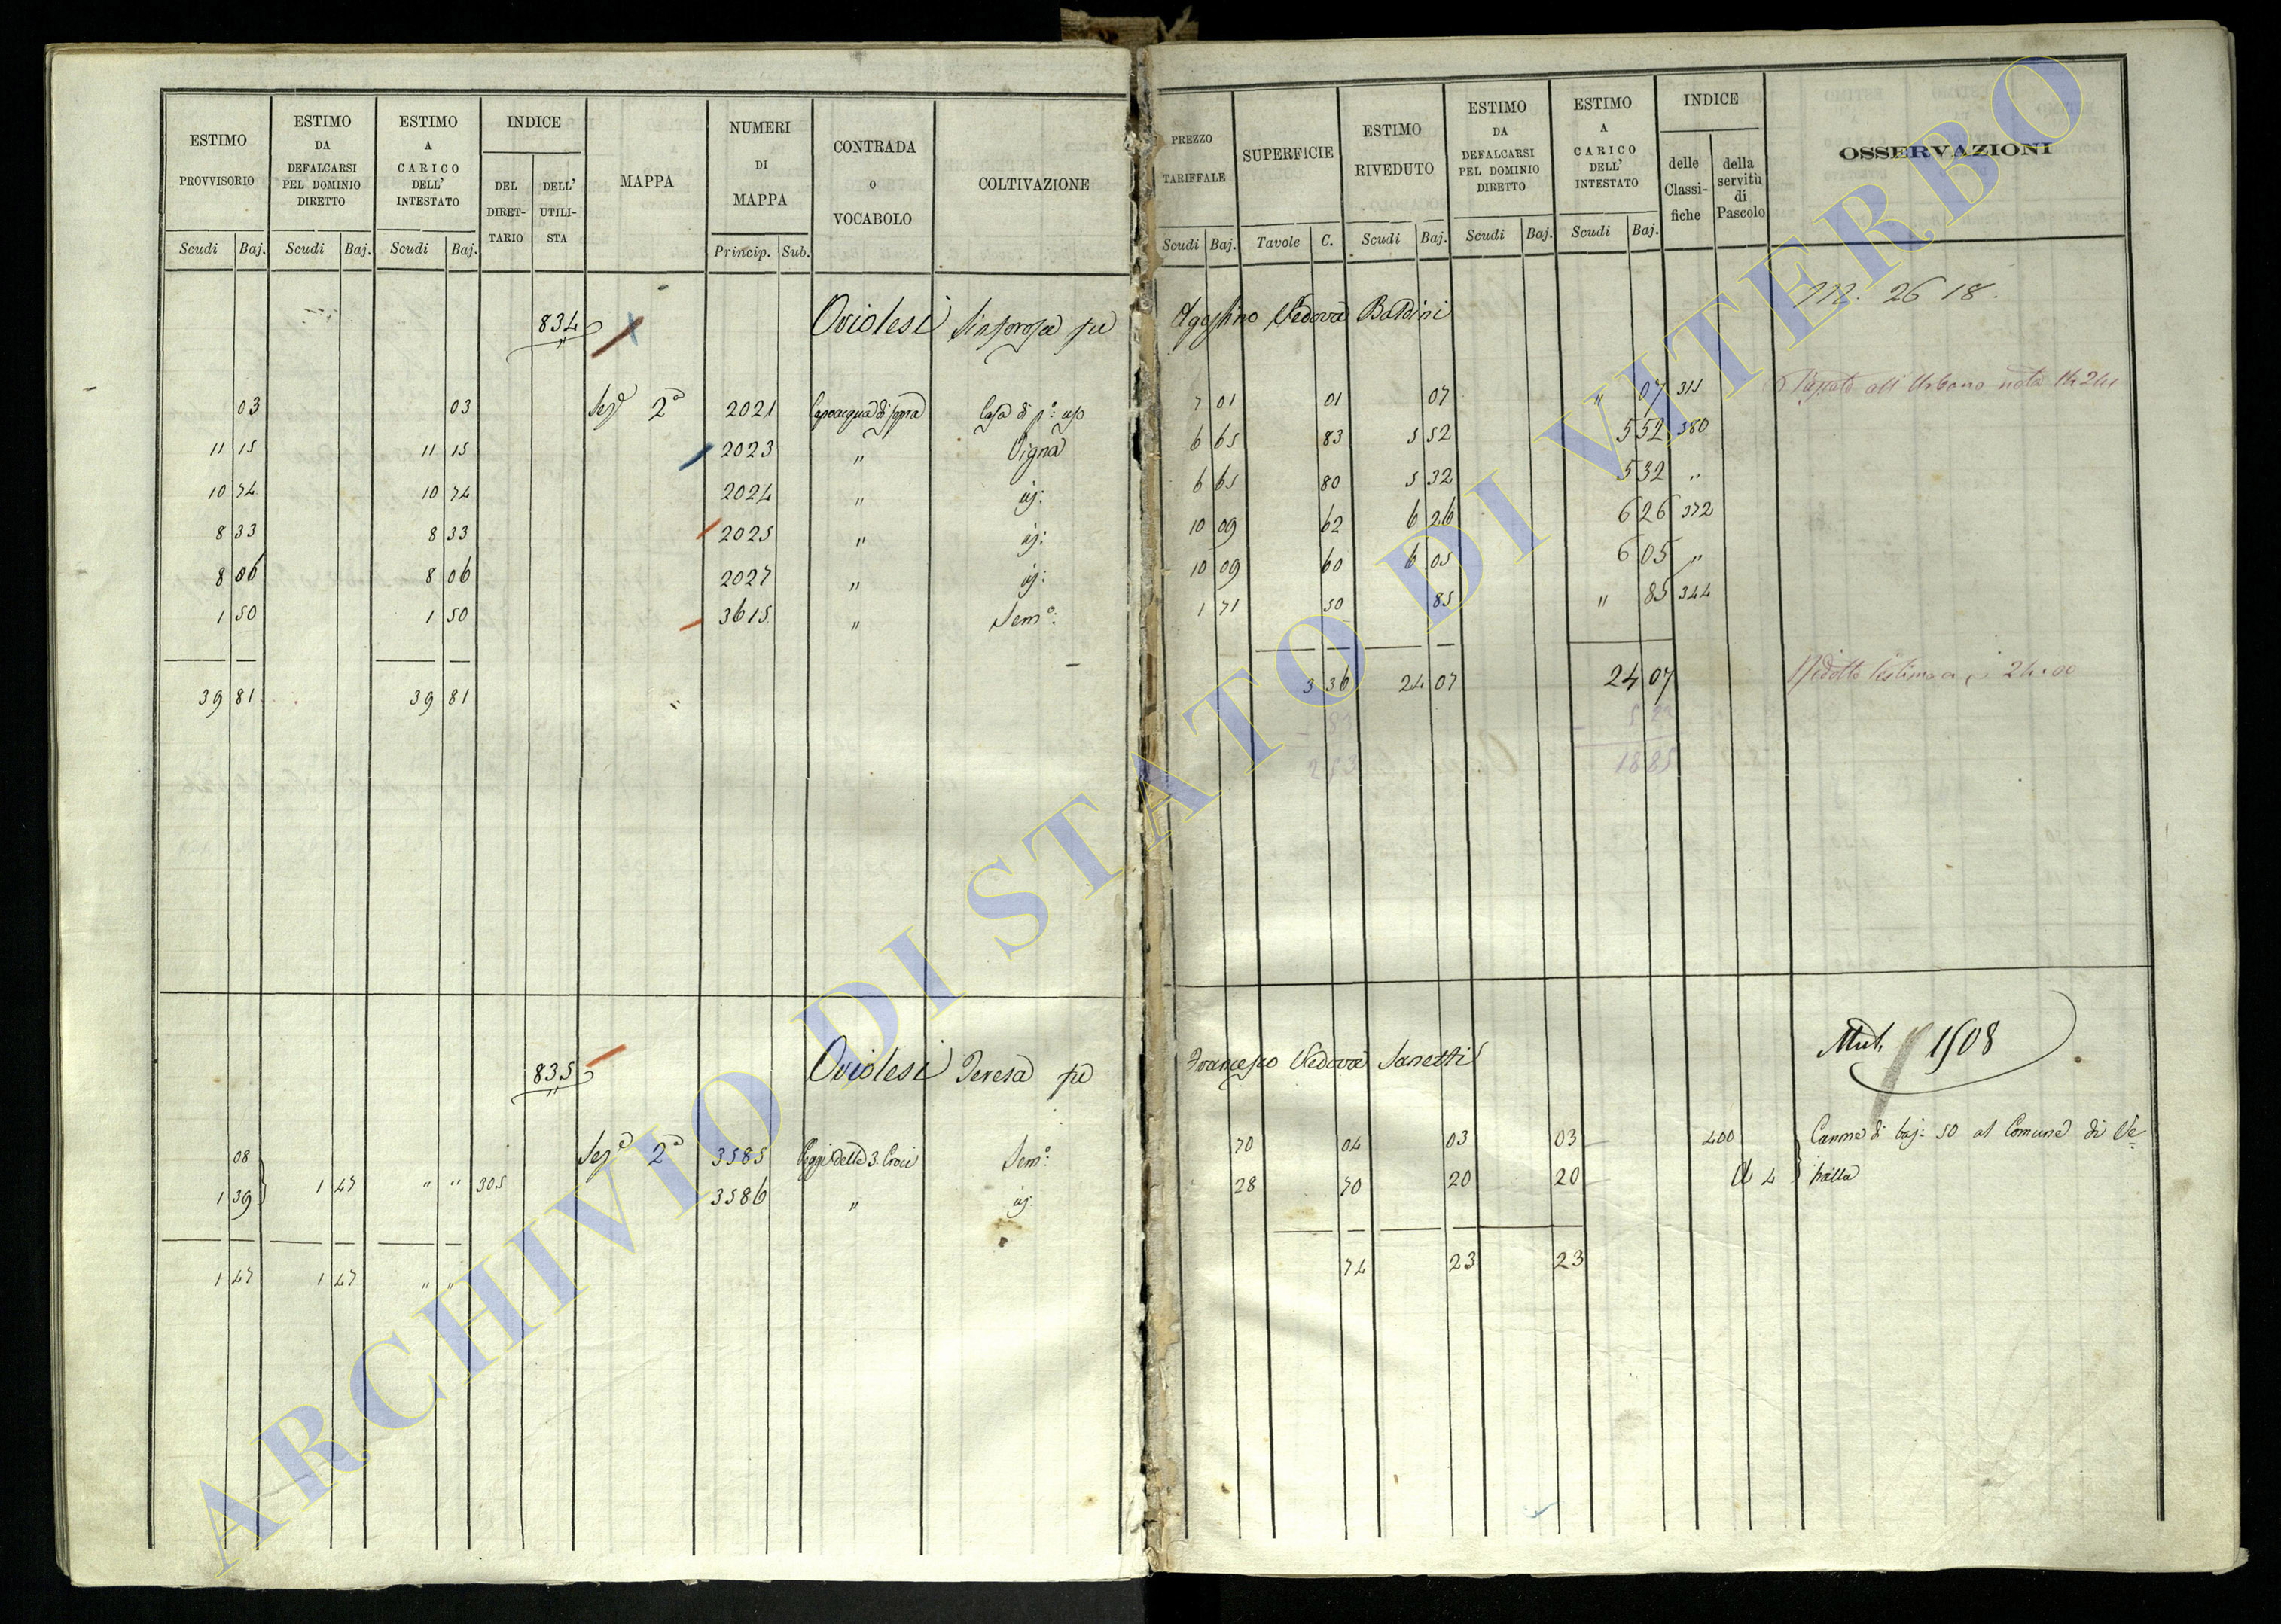 ESTIMO PROVVISORIO Scudi Baj.
ESTIMO DA DEFALCARSI PEL DOMINIO DIRETTO Scudi Baj.
ESTIMO A CARICO DELL' INTESTATO Scudi Baj.
INDICE DEL DIRET- TARIO DELL' UTILI- STA
MAPPA
NUMERI DI MAPPA Princip. Sub.
CONTRADA O VOCABOLO
COLTIVAZIONE
PREZZO TARIFFALE Scudi Baj.
SUPERFICIE Tavole C.
ESTIMO RIVEDUTO Scudi Baj.
ESTIMO DA DEFALCARSI PEL DOMINIO DIRETTO Scudi Baj.
ESTIMO A CARICO DELL' INTESTATO Scudi Baj.
INDICE delle Classi- fiche della servitù di Pascolo
OSSERVAZIONI
M. 26 18.
834 Oriolesi Sinforosa fu Agostino Vedova Baldini
03 03 Sez.e 2a 2021 Capoacqua di sopra Casa di p.o uso 7 01 01 07 " 07 311 Passato all'Urbano nota
11 15 11 15 2023 " Vigna 6 65 83 5 52 5 52 380
10 74 10 74 2024 " id: 6 65 80 5 32 5 32 "
8 33 8 33 2025 " id: 10 09 62 6 26 6 26 372
8 06 8 06 2027 " id: 10 09 60 6 05 6 05 "
1 50 1 50 3615 " Sem.o: 1 71 50 85 " 85 344
39 81 39 81 3 36 24 07 24 07 24.00
18 85
835 Oriolesi Teresa fu Francesco Vedova Mut. 1508
08 Sez.e 2a 3585 Poggio delle 3. Croci Sem.o: 70 04 03 03 400 Canone di baj: 50 al Comune di Ve=
1 39 1 47 " " 305 3586 " id: 28 70 20 20 A 4 tralla
1 47 1 47 " " 74 23 23
ARCHIVIO DI STATO DI VITERBO